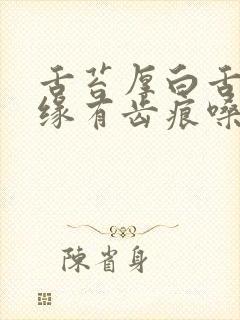 舌苔厚白舌
缘有齿痕嗓
陈省身